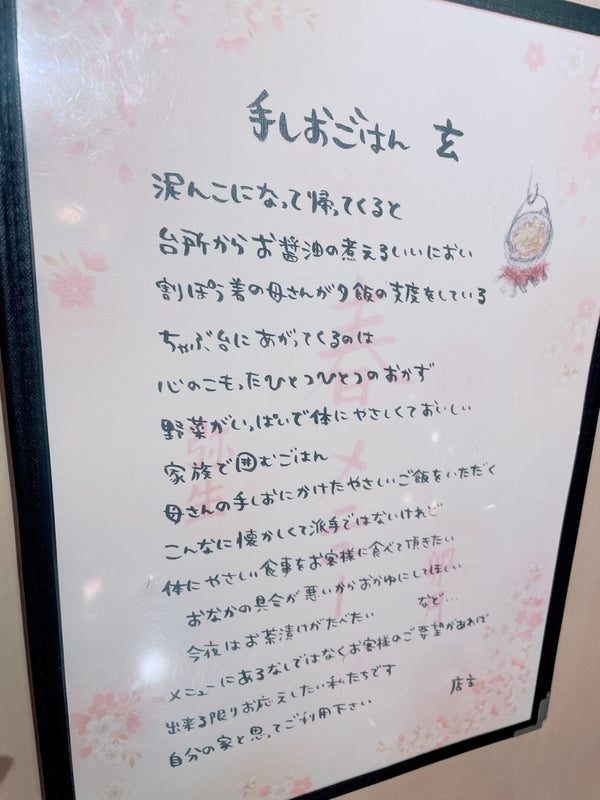 手しおごはん 玄
泥んこになって帰ってくると
台所からお醤油の煮えるいいにおい
割ぽう着の母さんが夕飯の支度をしている
ちゃぶ台にあがってくるのは
心のこもったひとつひとつのおかず
野菜がいっぱいで体にやさしくておいしい
家族で囲むごはん
母さんの手しおにかけたやさしいご飯をいただく
こんなに懐かしくて派手ではないけれど
体にやさしい食事をお客様に食べて頂きたい
おなかの具合が悪いからおかゆにしてほしい
今夜はお茶漬けがたべたい など…
メニューにあるなしではなくお客様のご要望があれば
出来る限りお応えしたい私たちです
自分の家と思ってご利用下さい 店主
春メニュー
弥生